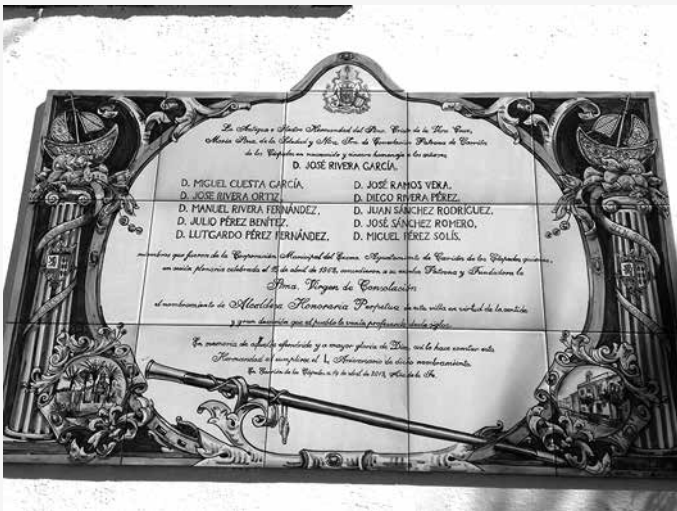 La Antigua e Ilustre Hermandad del Stmo. Cristo de la Vera Cruz,
María Stma. de la Soledad y Ntra. Sra. de Consolación Patrona de Carrión
de los Céspedes en reconocido y sincero homenaje a los señores
D. JOSÉ RIVERA GARCÍA.
D. MIGUEL CUESTA GARCÍA.
D. JOSE RIVERA ORTIZ.
D. MANUEL RIVERA FERNÁNDEZ.
D. JULIO PÉREZ BENÍTEZ.
D. LUTGARDO PÉREZ FERNÁNDEZ.
D. JOSÉ RAMOS VERA.
D. DIEGO RIVERA PÉREZ.
D. JUAN SÁNCHEZ RODRÍGUEZ.
D. JOSÉ SÁNCHEZ ROMERO.
D. MIGUEL PÉREZ SOLÍS.
miembros que fueron de la Corporación Municipal del Excmo. Ayuntamiento de Carrión de los Céspedes quienes,
en sesión plenaria celebrada el de abril de concedieron a su excelsa Patrona y Fundadora la
Stma. Virgen de Consolación
el nombramiento de Alcaldesa Honoraria Perpetua de esta villa en virtud de la sentida
y gran devoción que el pueblo le venía profesando desde siglos.
En memoria de aquella efeméride y a mayor gloria de Dios, así lo hace constar esta
Hermandad al cumplirse el L Aniversario de dicho nombramiento.
En Carrión de los Céspedes, a de abril de 2013, Año de la Fe.